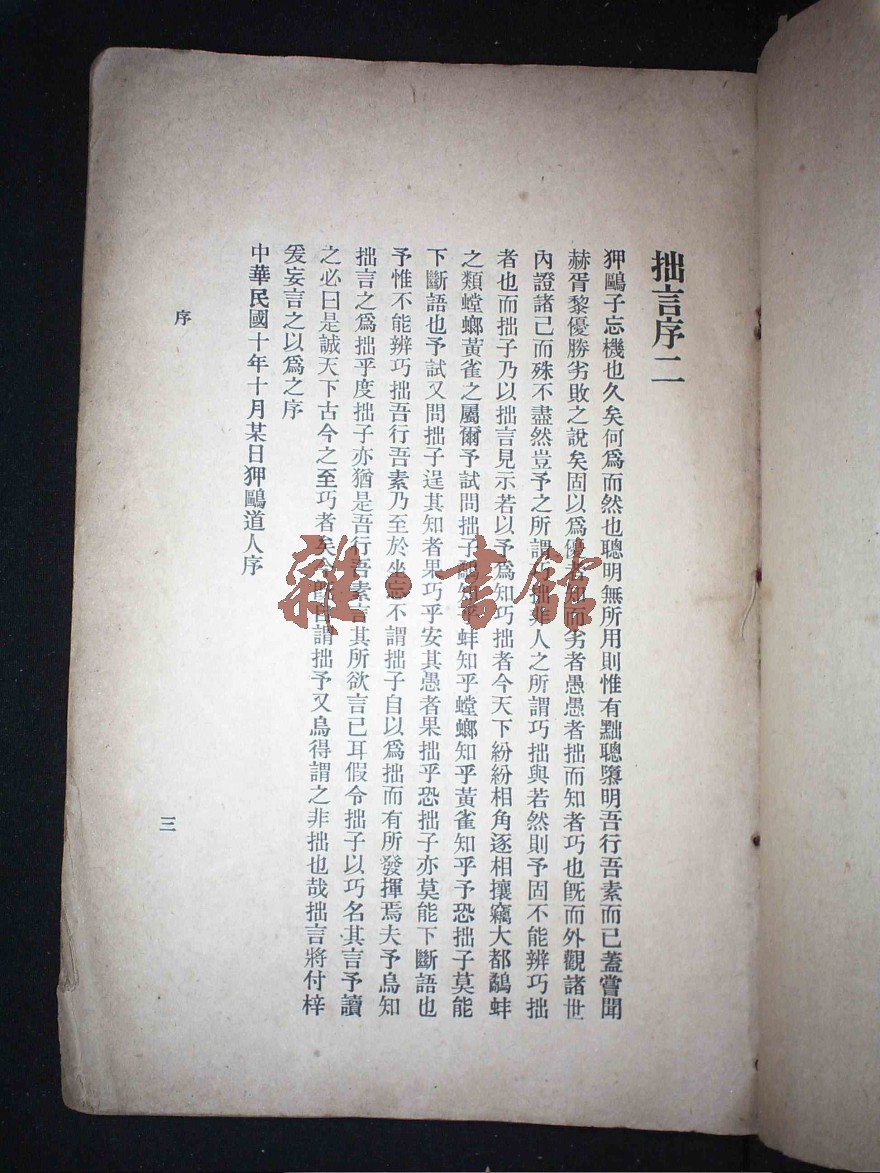 拙言序二
狎鷗子忘機也久矣何爲而然也聰明無所用則惟有黜聰墮明吾行吾素而已蓋嘗聞
赫胥黎優勝劣敗之說矣固以爲優者而劣者愚愚者拙而知者巧也旣而外觀諸世
內證諸己而殊不盡然豈予之所謂拙非人之所謂巧拙與若然則予固不能辨巧拙
者也而拙子乃以拙言見示若以予爲知巧拙者今天下紛紛相角逐相攘竊大都鷸蚌
之類螳螂黃雀之屬爾予試問拙子鷸知乎蚌知乎螳螂知乎黃雀知乎予恐拙子莫能
下斷語也予試又問拙子逞其知者果巧乎安其愚者果拙乎恐拙子亦莫能下斷語也
予惟不能辨巧拙吾行吾素乃至於坐忘不謂拙子自以爲拙而有所發揮焉夫予烏知
拙言之爲拙乎度拙子亦猶是吾行吾素言其所欲言已耳假令拙子以巧名其言予讀
之必曰是誠天下古今之至巧者矣今謂拙予又烏得謂之非拙也哉拙言將付梓
爰妄言之以爲之序
中華民國十年十月某日狎鷗道人序
序
三
雜·書館